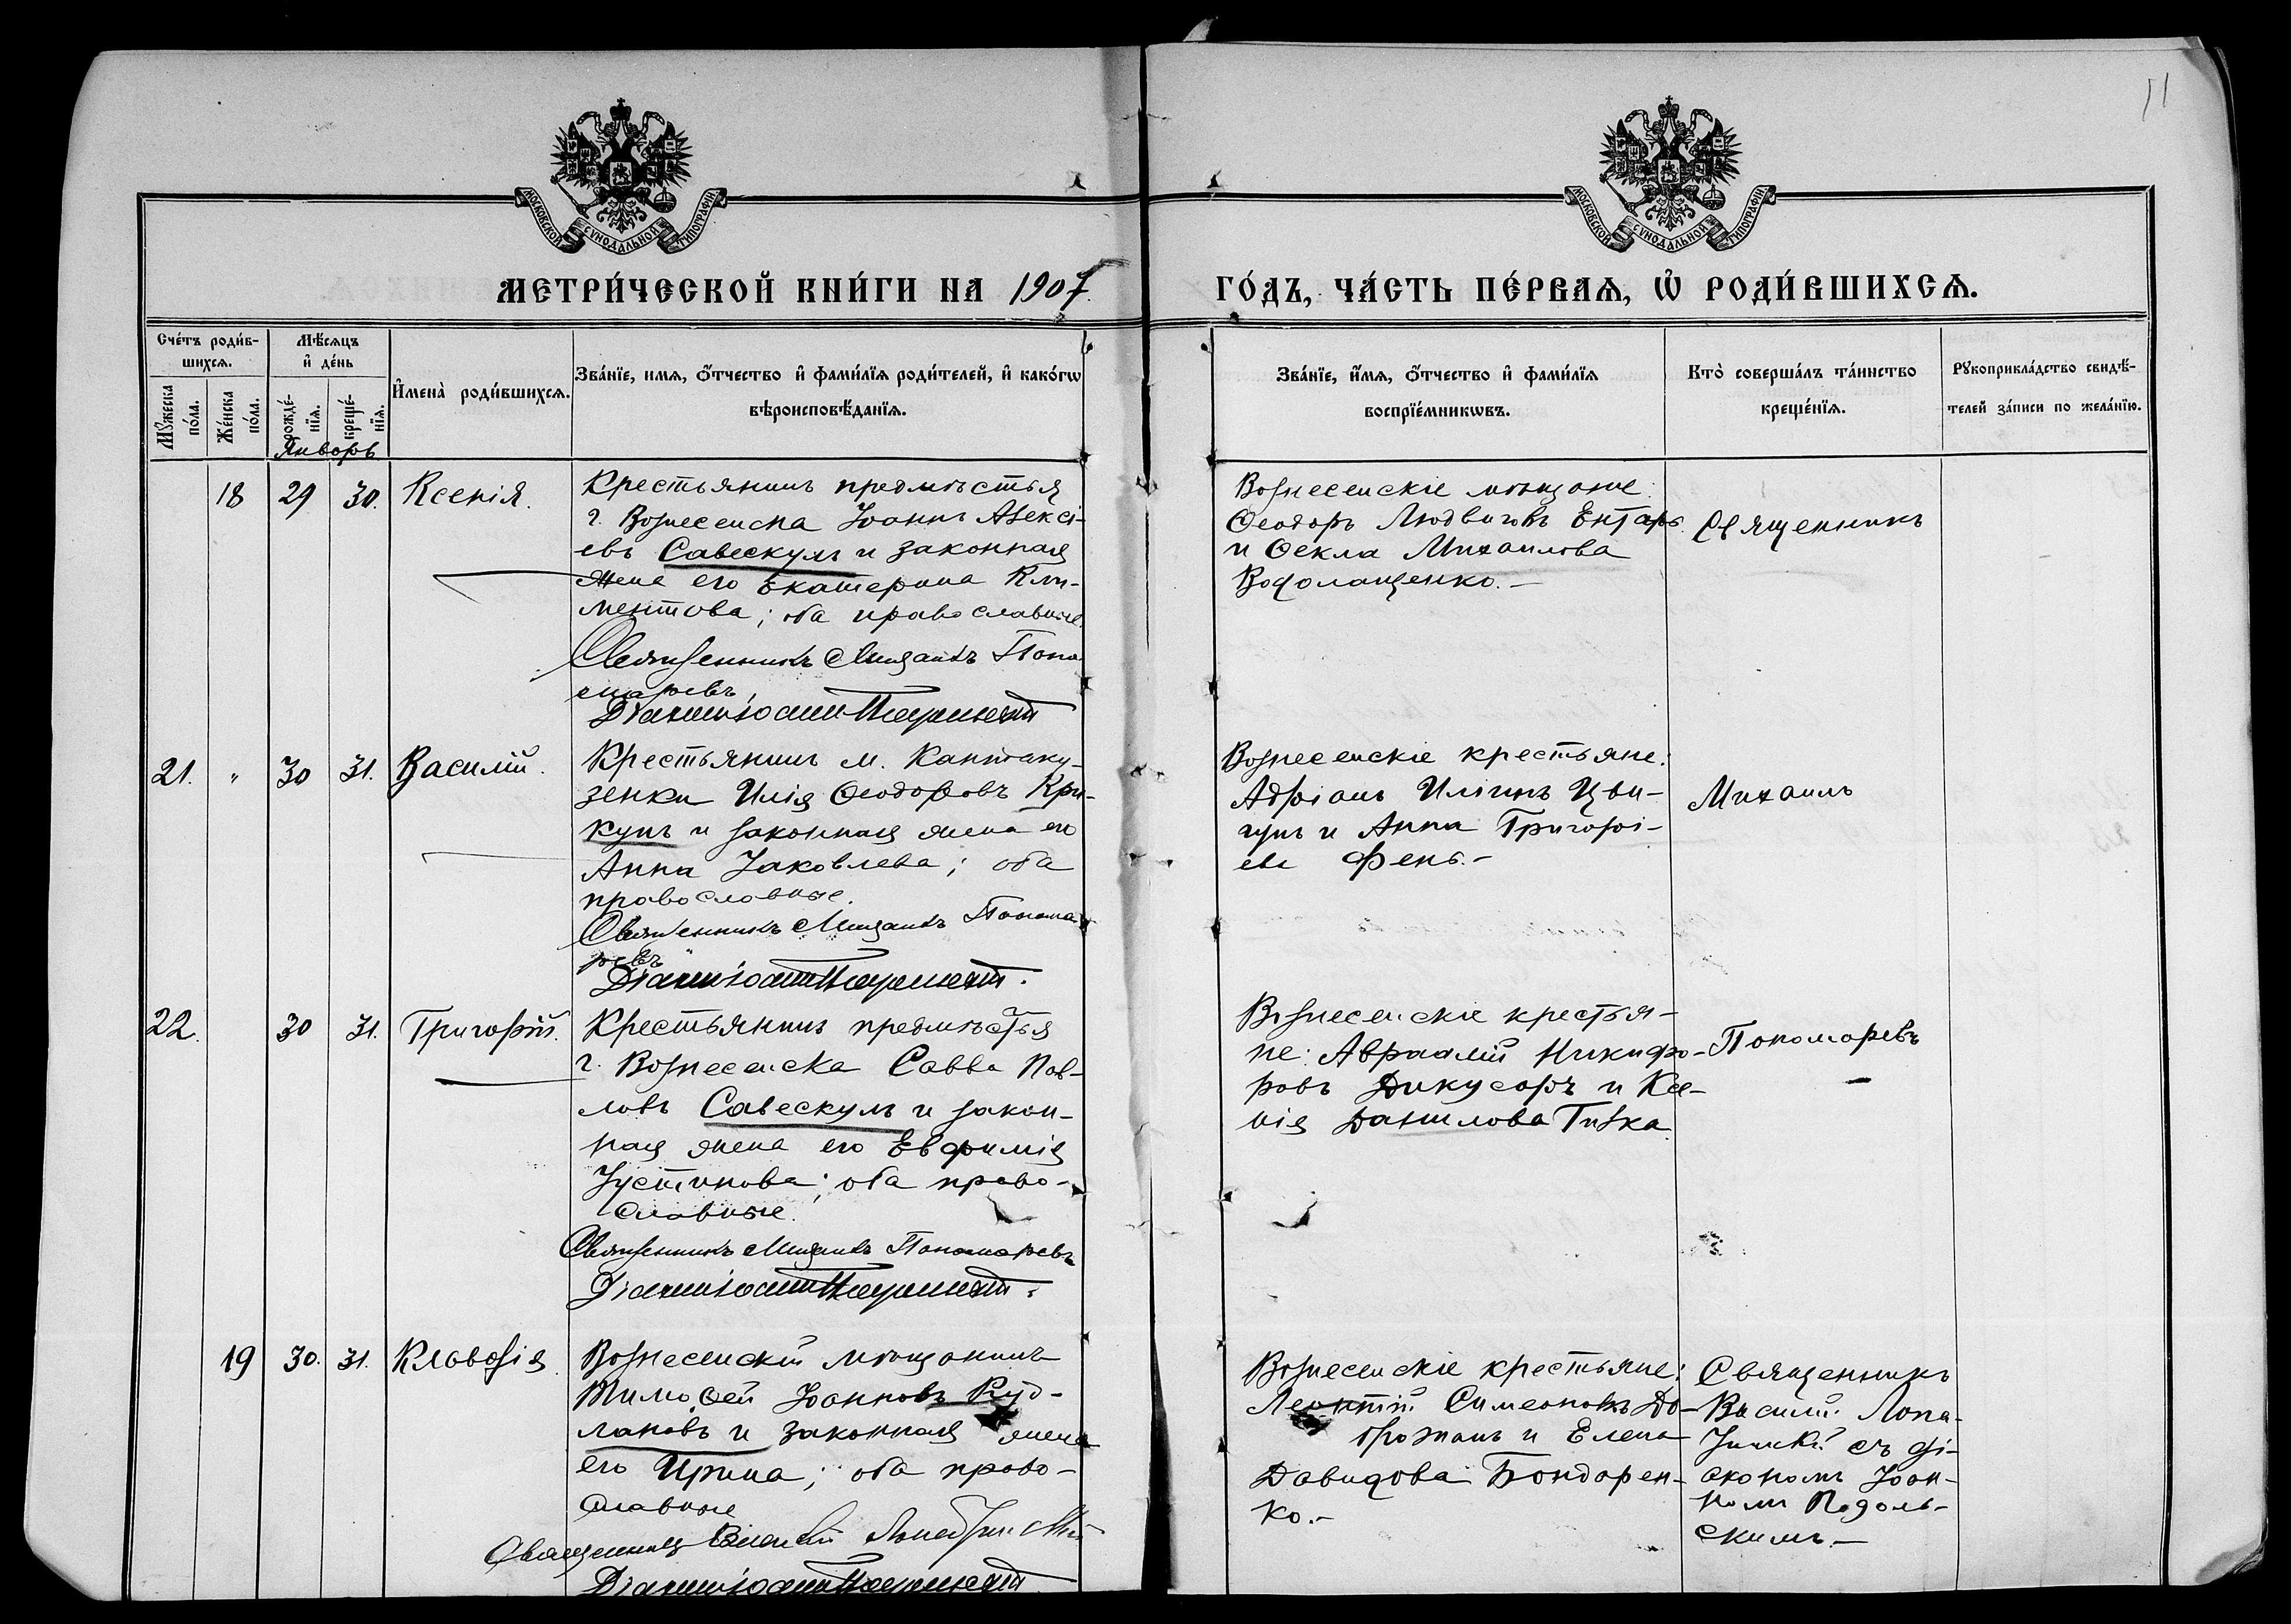 11
МОСКОВСКОЙ СУНОДАЛЬНОЙ ТИПОГРАФІИ
МОСКОВСКОЙ СУНОДАЛЬНОЙ ТИПОГРАФІИ
МЕТРИ́ЧЕСКОЙ КНИ́ГИ НА 1907
ГО́ДЪ, ЧА́СТЬ ПЕ́РВАѦ, Ѽ РОДИ́ВШИХСѦ.
Сче́тъ роди́в-
шихсѧ.
Мꙋжеска по́ла.
Же́нска по́ла.
Мѣ́сѧцъ
и҆ де́нь
рожде́-
нїѧ.
креще́-
нїѧ.
Январь
И҆мена̀ роди́вшихсѧ.
Зва́нїе, имѧ, ѻ҆́тчество и҆ фами́лїѧ роди́телей, и҆ како́гѡ
вѣроисповѣ́данїѧ.
Зва́нїе, и҆́мѧ, ѻ҆́тчество и҆ фами́лїѧ
воспрїе́мникѡвъ.
Кто̀ соверша́лъ та́инство
креще́нїѧ.
Рꙋкоприкла́дство свидѣ́-
телей за́писи по жела́нїю.
18 29 30. Ксенія.
Крестьянинъ предмѣстья
г. Вознесенска Іоаннъ Алексі-
евъ Савескулъ и законная
жена его Екатерина Кли-
ментова; оба православные.
Священникъ Михаилъ Поно
маревъ,
Діаконъ
Вознесенскіе мѣщане:
Ѳеодоръ Людвиговъ
и Ѳекла Михаилова
Водолащенко.—
Священникъ
21. „ 30 31. Василій.
Крестьянинъ м. Кантаку-
зенки Илія Ѳеодоровъ Кри-
кунъ и законная жена его
Анна Іаковлева; оба
православные.
Священникъ Михаилъ Понома-
ревъ
Діаконъ
Вознесенскіе крестьяне:
Адріанъ Иліинъ Цви-
гунъ и Анна Григорі-
ева Фень.—
Михаилъ
22. 30 31. Григорій.
Крестьянинъ предмѣстья
г. Вознесенска Савва Пав-
ловъ Савескулъ и закон-
ная жена его Евфимія
Іустинова; оба право-
славные.
Священникъ Михаилъ Пономаревъ
Діаконъ
Вознесенскіе крестья-
не: Авраамій Никифо-
ровъ Дикусаръ и Ксе-
нія Данилова
Пономаревъ
—
19 30. 31. Клавдія.
Вознесенскій мѣщанинъ
Тимоѳей Іоанновъ Куд-
лановъ и законная жена
его Ирина; оба право-
славные
Священникъ Василій
Діаконъ
Вознесенскіе крестьяне:
Леонтій Симеоновъ До-
брожанъ и Елена
Давидова Бондарен-
ко.—
Священникъ
Василій Лопа-
съ ді-
акономъ Іоан-
номъ Подоль-
скимъ.—